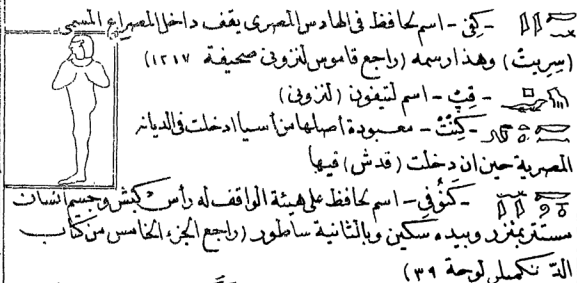 - كِفِى - اسم لحافظ فى الهادس المصرى يقف داخل المصراع المسمى
(سِرِبِتْ) وهذا رسمه (راجع قاموس لنزونى صحيفة ١٢١٧)
- قِبْ - اسم لتيفون (لنزونى)
- كِنْتْ - معبودة أصلها من أسيا ادخلت فى الديانه
المصرية حين ان دخلت (قدش) فيها
- كَوُفِى - اسم لحافظ على هيئة الواقف له رأس كبش وجسم انسان
مستتر بمئزر وبيده سكين وبالثانية ساطور (راجع الجزء الخامس من كتاب
الدّ لوحة ٣٩)